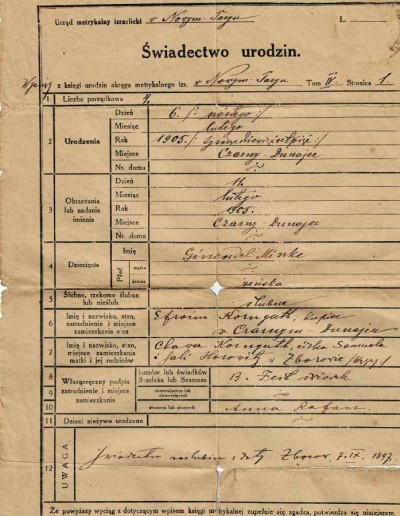 Urząd metrykalny izraelicki w Nowym-Targu L.
Świadectwo urodzin.
z księgi urodzin okręgu metrykalnego izr. w Nowym-Targu Tom IV. Stronica 1.
1 Liczba porządkowa 4.
2 Urodzenia
Dzień 6. /: szóstego :/
Miesiąc lutego
Rok 1905. /:
Miejsce Czarny-Dunajec
Nr. domu
3 Obrzezania lub nadania imienia
Dzień 11.
Miesiąc lutego
Rok 1905.
Miejsce Czarny-Dunajec
Nr. domu
4 Dziecięcia
Imię Minke
Płeć męska
żeńska żeńska
5 Ślubne, rzekomo ślubne lub nieślub. ślubne
6 Imię i nazwisko, stan, zatrudnienie i miejsce zamieszkania ojca
Efroim Korngut, kupiec
w Czarnym Dunajcu
7 Imię i nazwisko, stan, miejsce zamieszkania matki i jej rodziców
Korngut, córka Samuela
i Sali Horovitz w Zborowie
Własnoręczny podpis zatrudnienie i miejsce zamieszkania
8 kumów lub świadków Sandeka lub Szamesa
9
10
Anna
11 Dzieci nieżywo urodzone
12 UWAGA
Świadectwo Zborov, 7.IX. 1897.
Że powyższy wyciąg z dotyczącym wpisem księgi metrykalnej zupełnie się zgadza, potwierdza się niniejszem.